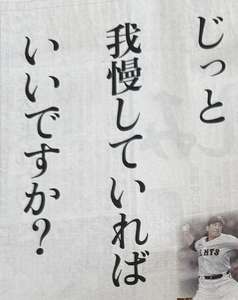 じっと
我慢していれば
いいですか？
ANTS